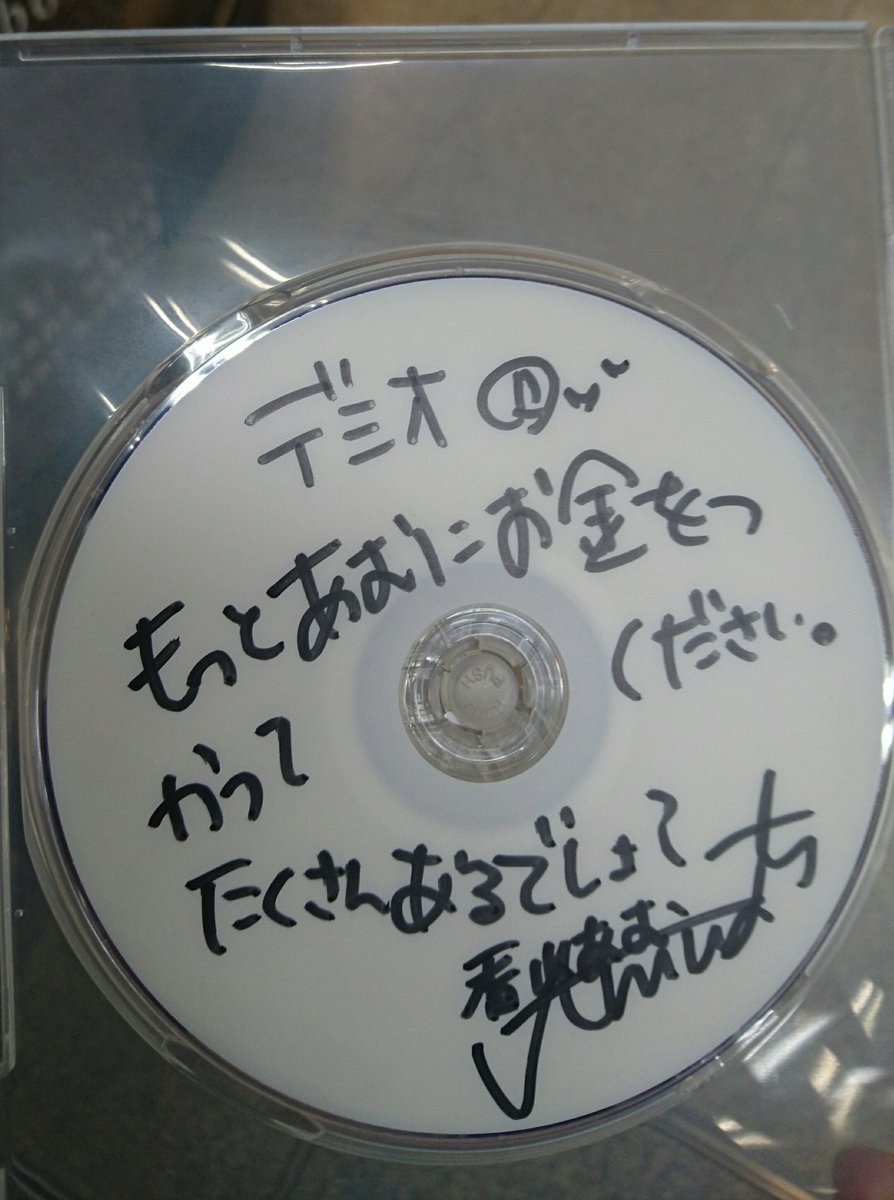 デミオ
もっとあむにお金をつ
かって ください。
たくさんあるでしょて
PUSH